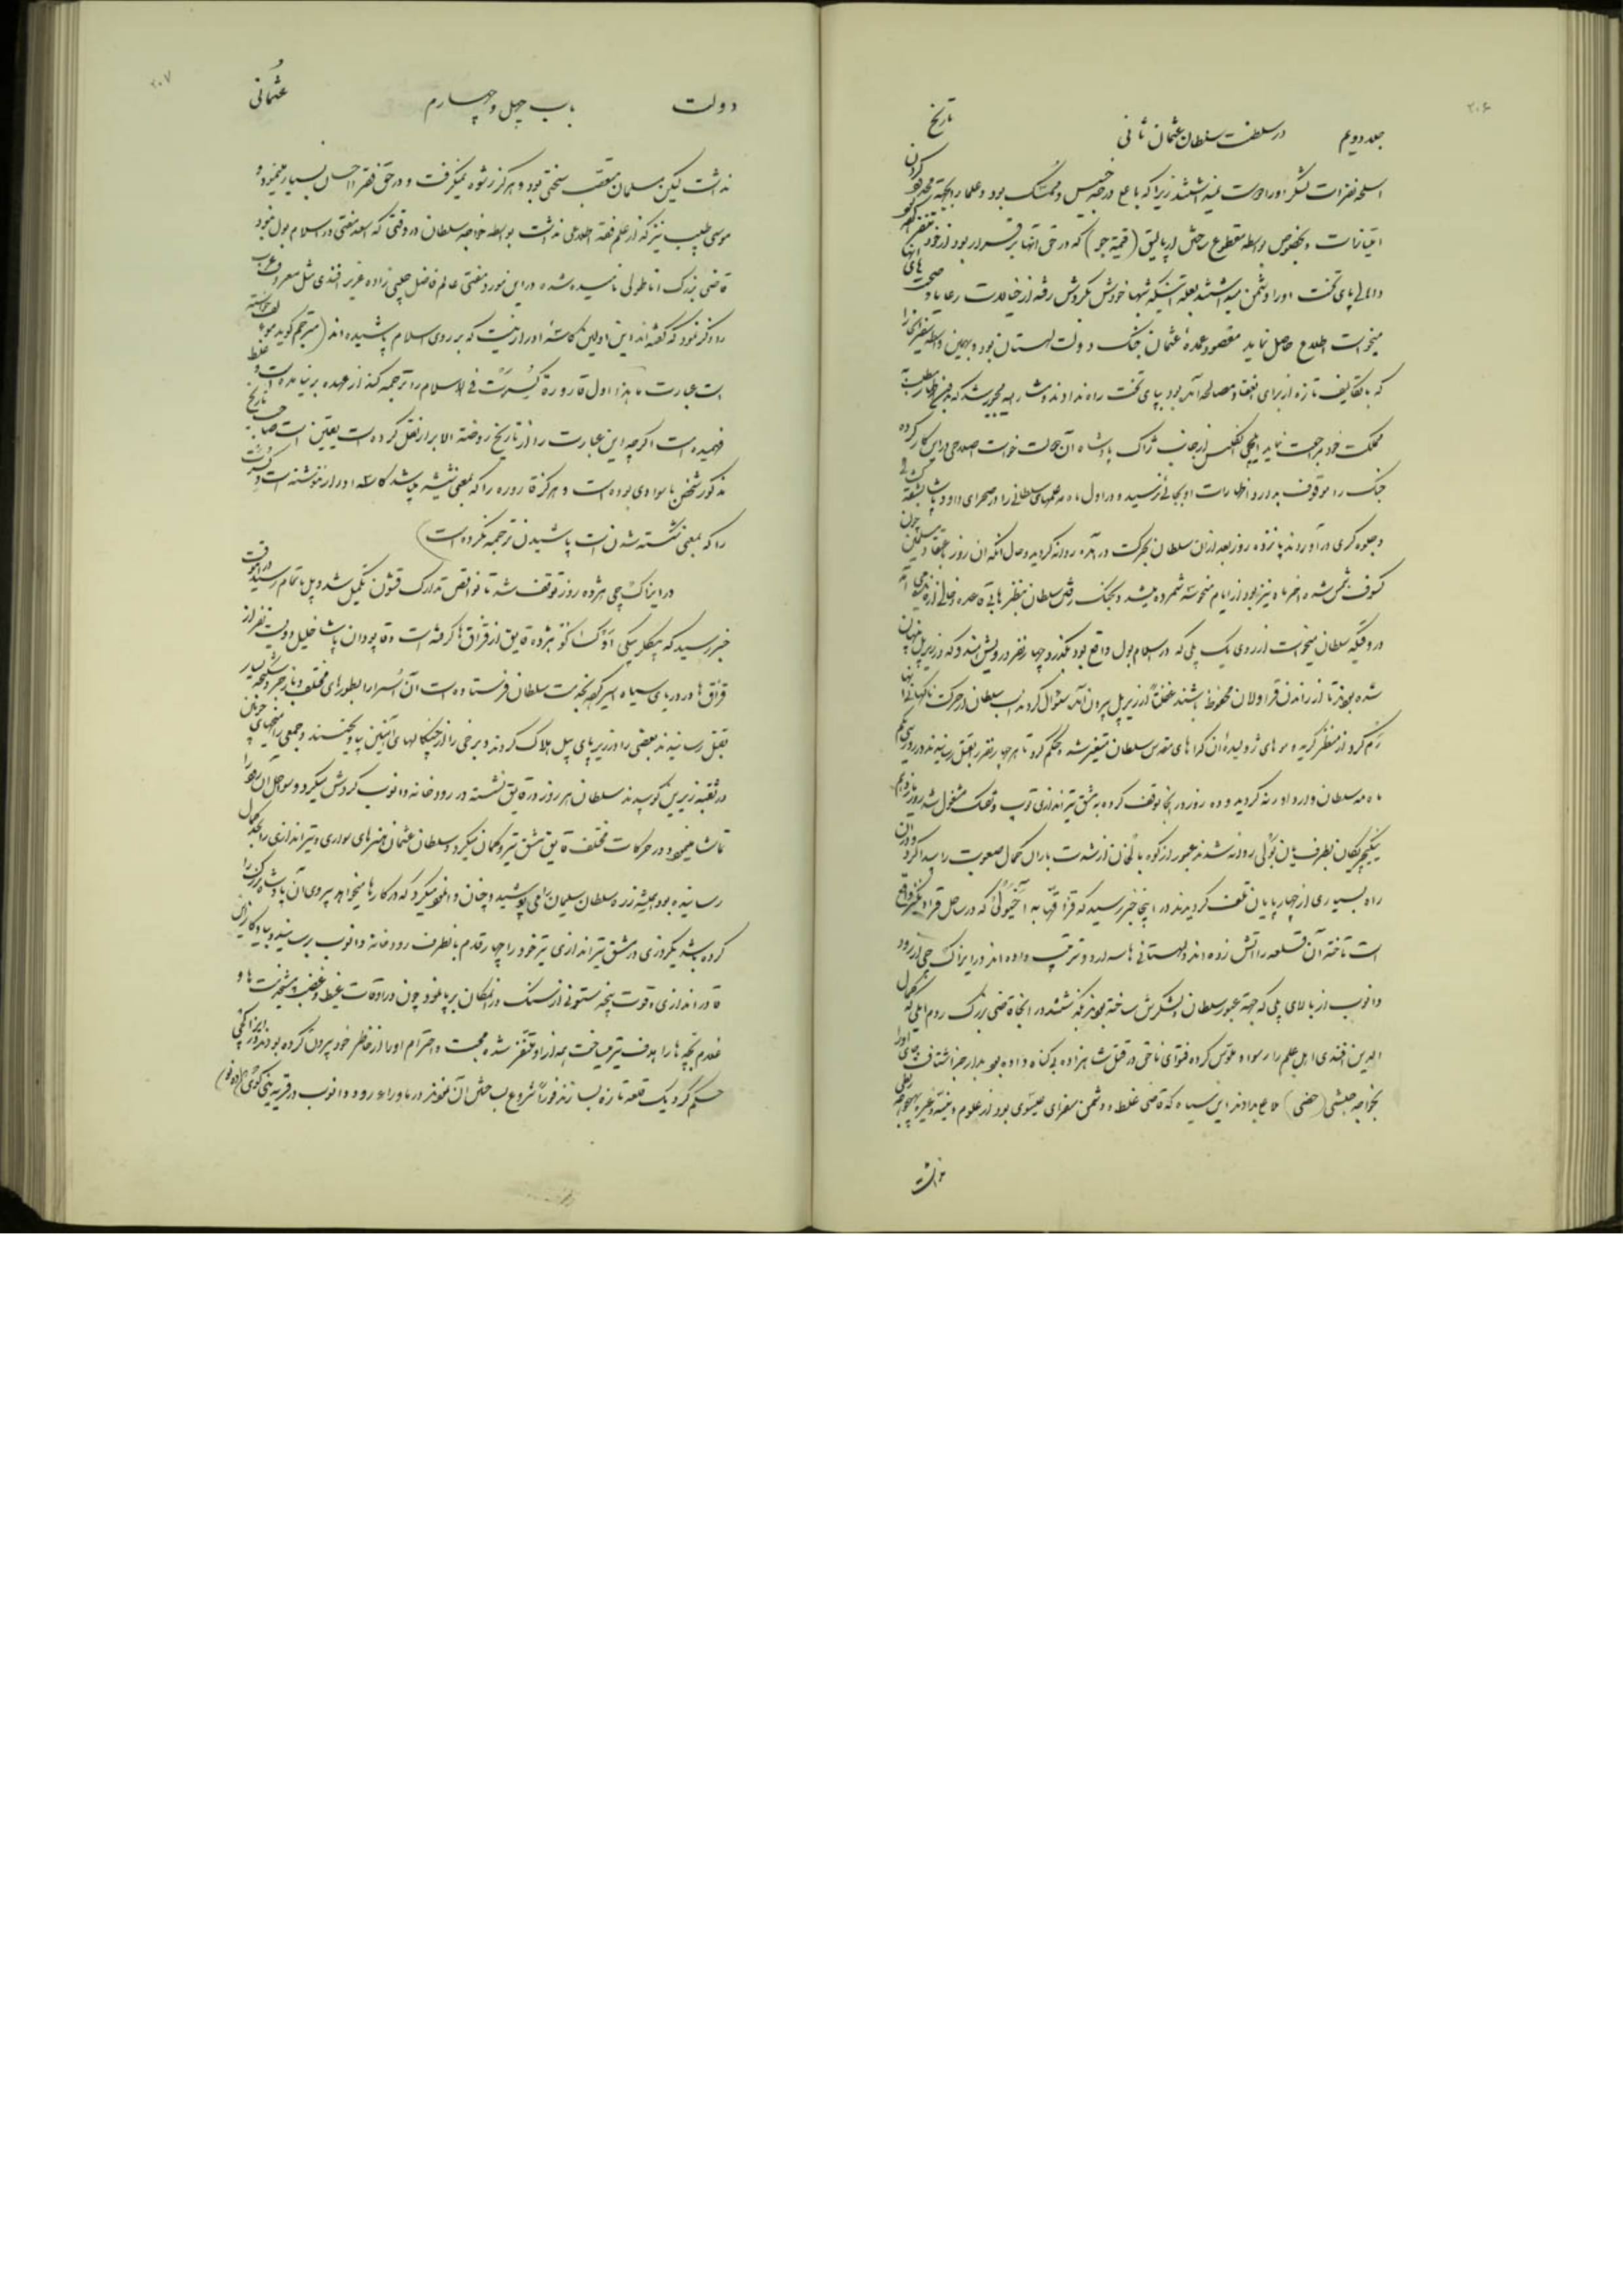 ۲۰۶
جلد دویم در سلطنت سلطان عثمان ثانی تاریخ
اسلحه نفرات لشکر اورا دوست نمیداشتند زیرا که باعلی درجه خسیس و ممسک بود و علما را بجهة محدود کردن
امتیازات و بخصوص بواسطه مقطوع ساختن ارپالیق (قیمة جو) که در حق آنها برقرار بود از خود متنفر کرده
و اهالی پای تخت اورا دشمن میداشتند بعلة اینکه شبها خودش بگردش رفته از خیالات رعایا و صحبت های آنها
میخواست اطلاع حاصل نماید مقصود عمدهٔ عثمان جنک دولت لهستان بود و بهمین واسطه سفیر آنجا را
که با تکالیف تازه از برای انعقاد مصالحه آمده بود بپای تخت راه ندادند و مشارالیه مجبور شد که
مملکت خود مراجعت نماید ایلچی انکلیس از جانب ژاک پادشاه آن مملکت خواست اصلاحی در این کار کرده
جنک را موقوف بدارد اظهارات او بجائی نرسید و در اول ماه مه علمهای سلطانی را در صحرای داود پاشا
و جلوه کری درآوردند پانزده روز بعد از آن سلطان بحرکت درآمده روانه گردید و حال آنکه آن روز باعتقاد مسلمین چون
کسوف شمس شده و آخر ماه نیز بود از ایام منحوسه شمرده میشد و بجنک رفتن سلطان بنظرها بی قاعده و خالی از
در وقتیکه سلطان میخواست از روی یک پلی که در اسلامبول واقع بود بگذرد چهار نفر درویش هندو که در زیر پل پنهان
شده بودند تا از راندن قراولان محفوظ باشند غفلتاً از زیر پل بیرون آمده سؤال کردند اسب سلطان از حرکت ناکهانی آنها
رَم کرد از منظر کریه و موهای ژولیدهٔ آن گداهای مقدس سلطان متغیر شده و حکم کرد تا هر چهار نفر را بقتل رسانیدند در روز سی و یکم
ماه مه سلطان وارد ادرنه گردید و ده روز در آنجا توقف کرده به مشق تیراندازی توپ و تفنک مشغول شد روز یازدهم
راه بسیاری از چهارپایان تلف گردیدند در اینجا خبر رسید که قزاقها به آخیولی که در ساحل قرادنکیز واقع
است تاخته آن قلعه را آتش زده اند و لهستانی ها
دانوب از بالای پلی که جهة عبور سلطان و لشکرش ساخته بودند بگذشتند در آنجا قاضی بزرک روم ایلی
الدین افندی اهل علم را رسوا و ملوّس کرده فتوای ناحق در قتل شاهزاده بیکناه داده بود بدار جزا شتافت جای اورا
بخواجه حبشی (خصی) ملا علی دادند این سیاه که قاضی غلطه و دشمن سفرای عیسوی بود از علوم دینیه و غیره بهیچوجه ربطی
نداشت
۲۰۷
دولت باب چهل و چهارم عثمانی
نداشت لیکن مسلمان متعصب سختی بود و هرگز رشوه نمیگرفت و در حق فقرا احسان بسیار مینمود و
موسی طبیب نیز که از علم فقه اطلاعی نداشت بواسطه خواجه سلطان در وقتی که اسعد مفتی در اسلامبول نبود
قاضی بزرک اناطولی نامیده شد و در این مورد مفتی عالم فاضل چلبی زاده عزیز افندی مثل معروف عرب
را ذکر نمود که گفته اند این اولین کاسهٔ اورازنیست که بر روی اسلام پاشیده اند (مترجم گوید مولف خواسته
است عبارت ما هذا اول قارورة کُسِرَت فی الاسلام را ترجمه کند از عهده برنیامده است و غلط
فهمیده است اگرچه این عبارت را از تاریخ روضة الابرار نقل کرده است یقین است صاحب تاریخ
مذکور شخص باسوادی بوده است و هرگز قاروره را که بمعنی شیشه میباشد کاسه اورار ننوشته است و کُسِرَت
را که بمعنی شکسته شدن است پاشیدن ترجمه نکرده است)
در ایزاکچی هژده روز توقف شد تا نواقص تدارک قشون تکمیل شد و پل باتمام رسید در آنوقت
خبر رسید که بیکلربیکی هژده قایق از قزاق ها گرفته است و قاپودان پاشا خلیل دویست نفر از
قزاق ها در دریای سیاه اسیر کرده بخدمت سلطان فرستاده است آن اُسَرا را بطورهای مختلف و با زجر و شکنجه بسیار
بقتل رسانیدند بعضی را در زیر پای پیل هلاک کردند و برخی را از چنگالهای آهنین بیاویختند و جمعی را میخهای چوبین
در ثقبه زیرین کوبیدند سلطان هر روز در قایق نشسته در رودخانه دانوب گردش میکرد و سواحل آن رود را
تماشا مینمود و در حرکات مختلف قایق مشق تیر و کمان میکرد سلطان عثمان هنرهای سواری و تیراندازی را بحد کمال
رسانیده بود همیشه زره سلطان سلیمان را می پوشید و چنان وانمود میکرد که در کارها میخواهد پیروی آن پادشاه بزرک را
کرده باشد یکروزی در مشق تیراندازی تیر خود را چهار قدم بآنطرف رودخانه دانوب رسانید و بیادگار این
قادراندازی و قوت پنجه ستونی از سنک در آنمکان برپا نمود چون در اوقات غیظ و غضب
غلام بچه ها را هدف تیر میساخت همه از او متنفر شده محبت و احترام اورا از خاطر خود بیرون کرده بودند در ایزاکچی
حکم کرد یک قلعهٔ تازه بسازند فوراً شروع بساختن آن نمودند در ماوراء رود دانوب در قریه